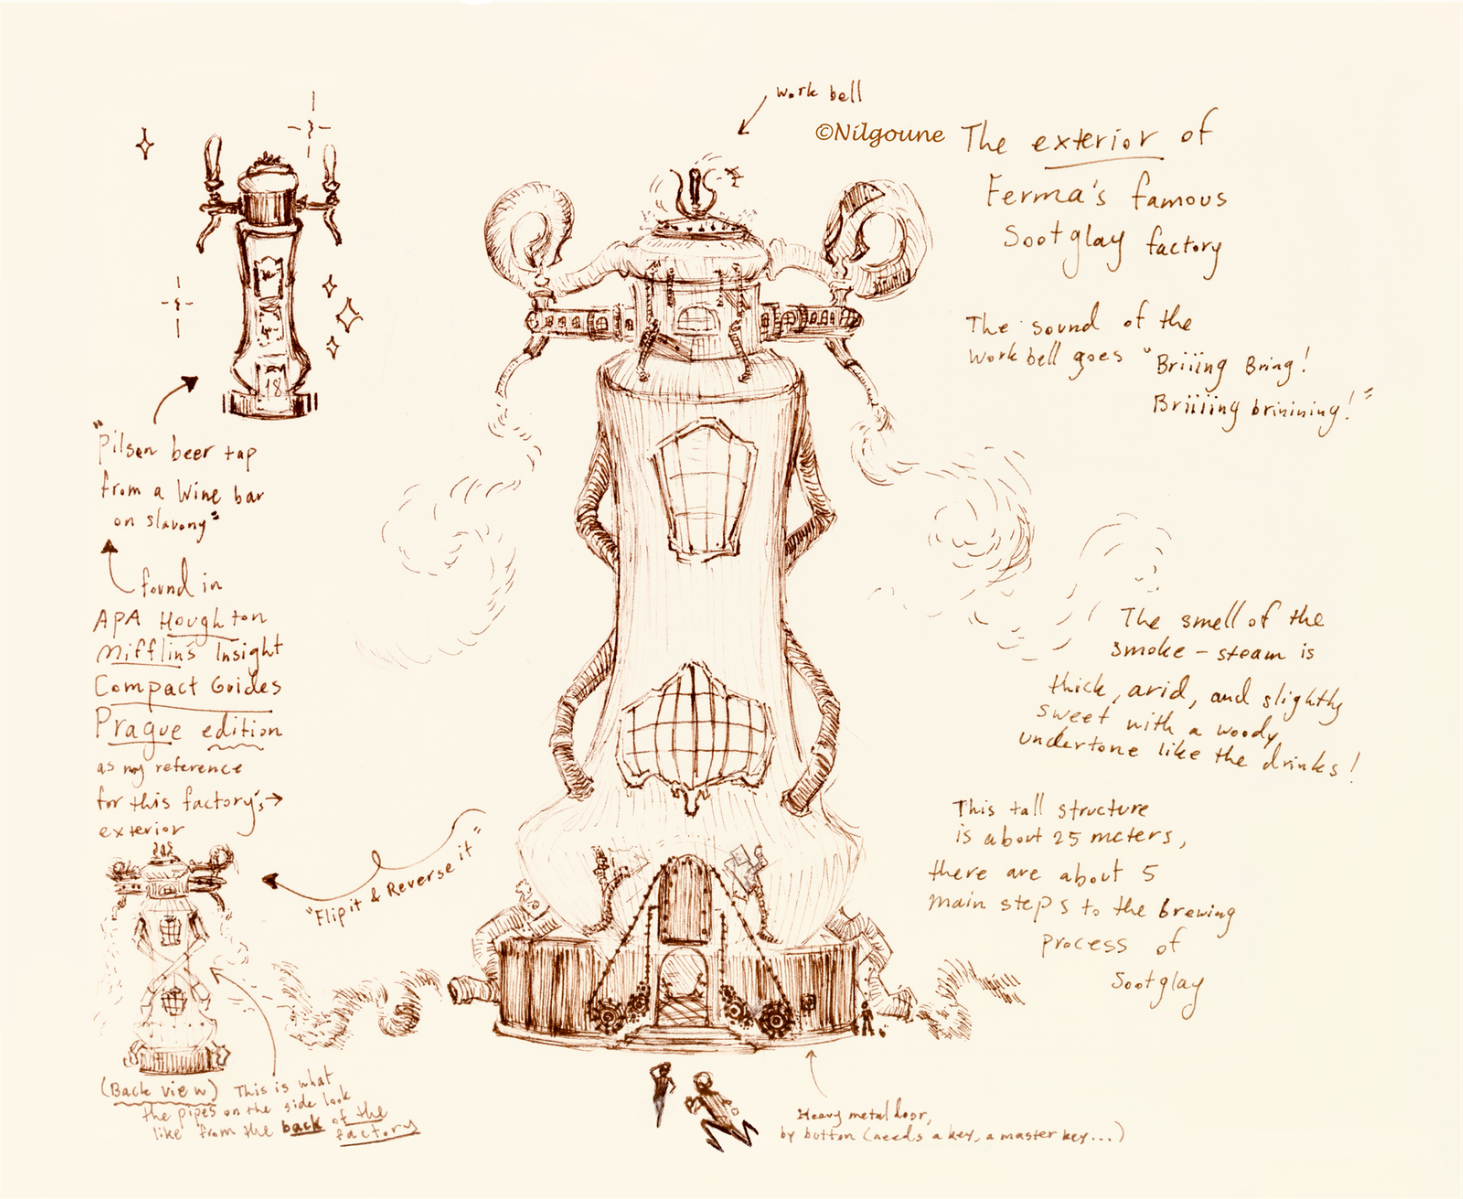 work bell
©Nilgoune
The exterior of
Ferma's famous
Sootglay factory
The sound of the
work bell goes "Briiing Bring!
Briiiing brinining!"
"Pilsen beer tap
from a Wine bar
on slavony"
found in
APA Houghton
Mifflin's Insight
Compact Guides
Prague edition
as my reference
for this factory's
exterior
18
"Flip it & Reverse it"
The smell of the
smoke - steam is
thick, arid, and slightly
sweet with a woody
undertone like the drinks!
This tall structure
is about 25 meters,
there are about 5
main steps to the brewing
process of
Sootglay
(Back view) This is what
the pipes on the side look
like from the back of the
factory
Heavy metal door,
by button (needs a key, a master key...)